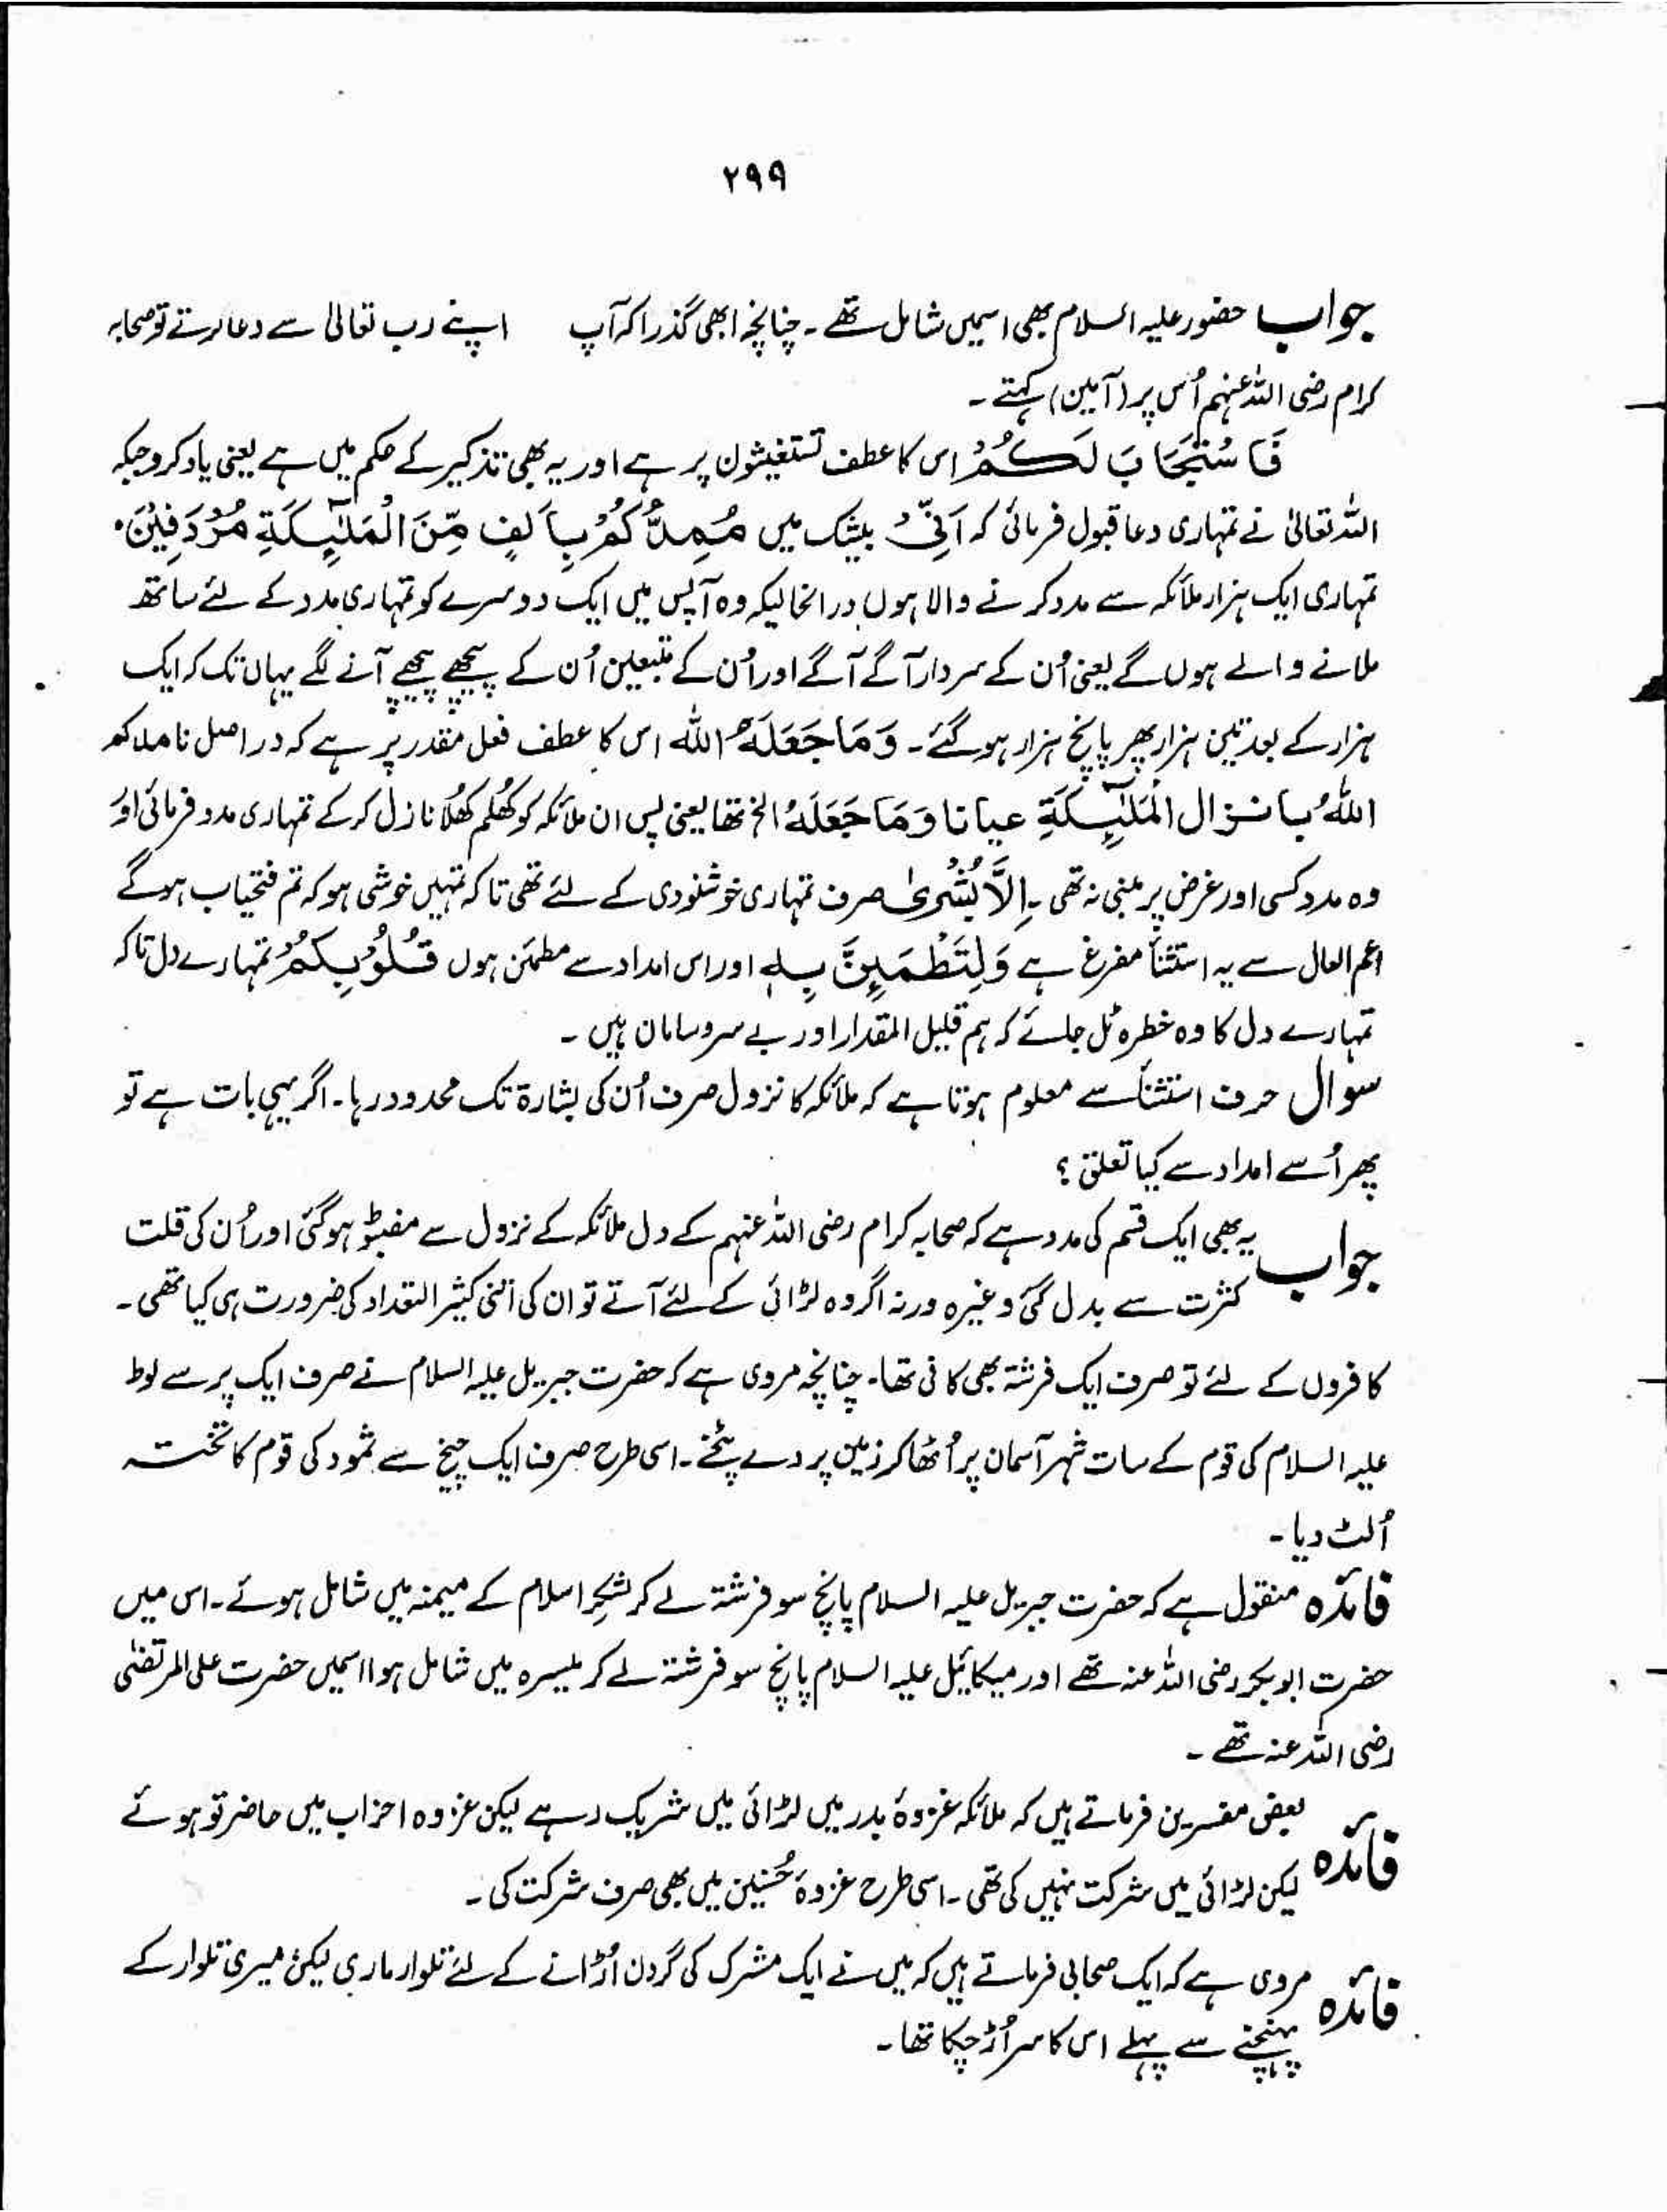 ۲۹۹
جواب حضور علیہ السلام بھی اسمیں شامل تھے ۔ چنانچہ ابھی گذرا کہ آپ اپنے رب تعالیٰ سے دعا کرتے تو صحابہ
کرام رضی اللہ عنہم اُس پر (آمین) کہتے ۔
فَاسْتَجَابَ لَكُمْ اس کا عطف تستغیثون پر ہے اور یہ بھی تذکیر کے حکم میں ہے یعنی یاد کرو جبکہ
اللہ تعالیٰ نے تمہاری دعا قبول فرمائی کہ اَنِّیْ بیشک میں مُمِدُّكُمْ بِاَلْفٍ مِّنَ الْمَلٰٓئِكَةِ مُرْدَفِیْنَ۔
تمہاری ایک ہزار ملائکہ سے مدد کرنے والا ہوں درانحالیکہ وہ آپس میں ایک دوسرے کو تمہاری مدد کے لئے ساتھ
ملانے والے ہوں گے یعنی اُن کے سردار آگے آگے اور اُن کے متبعین اُن کے پیچھے پیچھے آنے لگے یہاں تک کہ ایک
ہزار کے بعد تین ہزار پھر پانچ ہزار ہو گئے ۔ وَمَا جَعَلَهُ اللّٰهُ اس کا عطف فعل مقدر پر ہے کہ در اصل فامدكم
اللّٰهُ بانزال الْمَلٰٓئِكَةِ عیانا وَمَا جَعَلَهُ الخ تھا یعنی پس ان ملائکہ کو کھُلم کھُلا نازل کر کے تمہاری مدد فرمائی اور
وہ مدد کسی اور غرض پر مبنی نہ تھی ۔ اِلَّا بُشْرٰی صرف تمہاری خوشنودی کے لئے تھی تاکہ تمہیں خوشی ہو کہ تم فتحیاب ہوگے
اعم العال سے یہ استثنأ مفرغ ہے وَلِتَطْمَئِنَّ بِهٖ اور اس امداد سے مطمئن ہوں قُلُوْبُكُمْ تمہارے دل تاکہ
تمہارے دل کا وہ خطرہ ٹل جائے کہ ہم قلیل المقدار اور بے سروسامان ہیں ۔
سوال حرف استثنأ سے معلوم ہوتا ہے کہ ملائکہ کا نزول صرف اُن کی بشارۃ تک محدود رہا ۔ اگر یہی بات ہے تو
پھر اُسے امداد سے کیا تعلق ؟
جواب یہ بھی ایک قسم کی مدد ہے کہ صحابہ کرام رضی اللہ عنہم کے دل ملائکہ کے نزول سے مضبوط ہو گئی اور اُن کی قلت
کثرت سے بدل گئی وغیرہ ورنہ اگر وہ لڑائی کے لئے آتے تو ان کی اتنی کثیر التعداد کی ضرورت ہی کیا تھی ۔
کافروں کے لئے تو صرف ایک فرشتہ بھی کافی تھا ۔ چنانچہ مروی ہے کہ حضرت جبریل علیہ السلام نے صرف ایک پر سے لوط
علیہ السلام کی قوم کے سات شہر آسمان پر اُٹھا کر زمین پر دے پٹخے ۔ اسی طرح صرف ایک چیخ سے ثمود کی قوم کا تختہ
اُلٹ دیا ۔
فائدہ منقول ہے کہ حضرت جبریل علیہ السلام پانچ سو فرشتہ لے کر لشکر اسلام کے میمنہ میں شامل ہوئے ۔ اس میں
حضرت ابوبکر رضی اللہ عنہ تھے اور میکائیل علیہ السلام پانچ سو فرشتہ لے کر میسرہ میں شامل ہوا اسمیں حضرت علی المرتضیٰ
رضی اللہ عنہ تھے ۔
فائدہ بعض مفسرین فرماتے ہیں کہ ملائکہ غزوۂ بدر میں لڑائی میں شریک رہے لیکن غزوہ احزاب میں حاضر تو ہوئے
لیکن لڑائی میں شرکت نہیں کی تھی ۔ اسی طرح غزوۂ حُنین میں بھی صرف شرکت کی ۔
فائدہ مروی ہے کہ ایک صحابی فرماتے ہیں کہ میں نے ایک مشرک کی گردن اُڑانے کے لئے تلوار ماری لیکن میری تلوار کے
پہنچنے سے پہلے اس کا سر اُڑ چکا تھا ۔